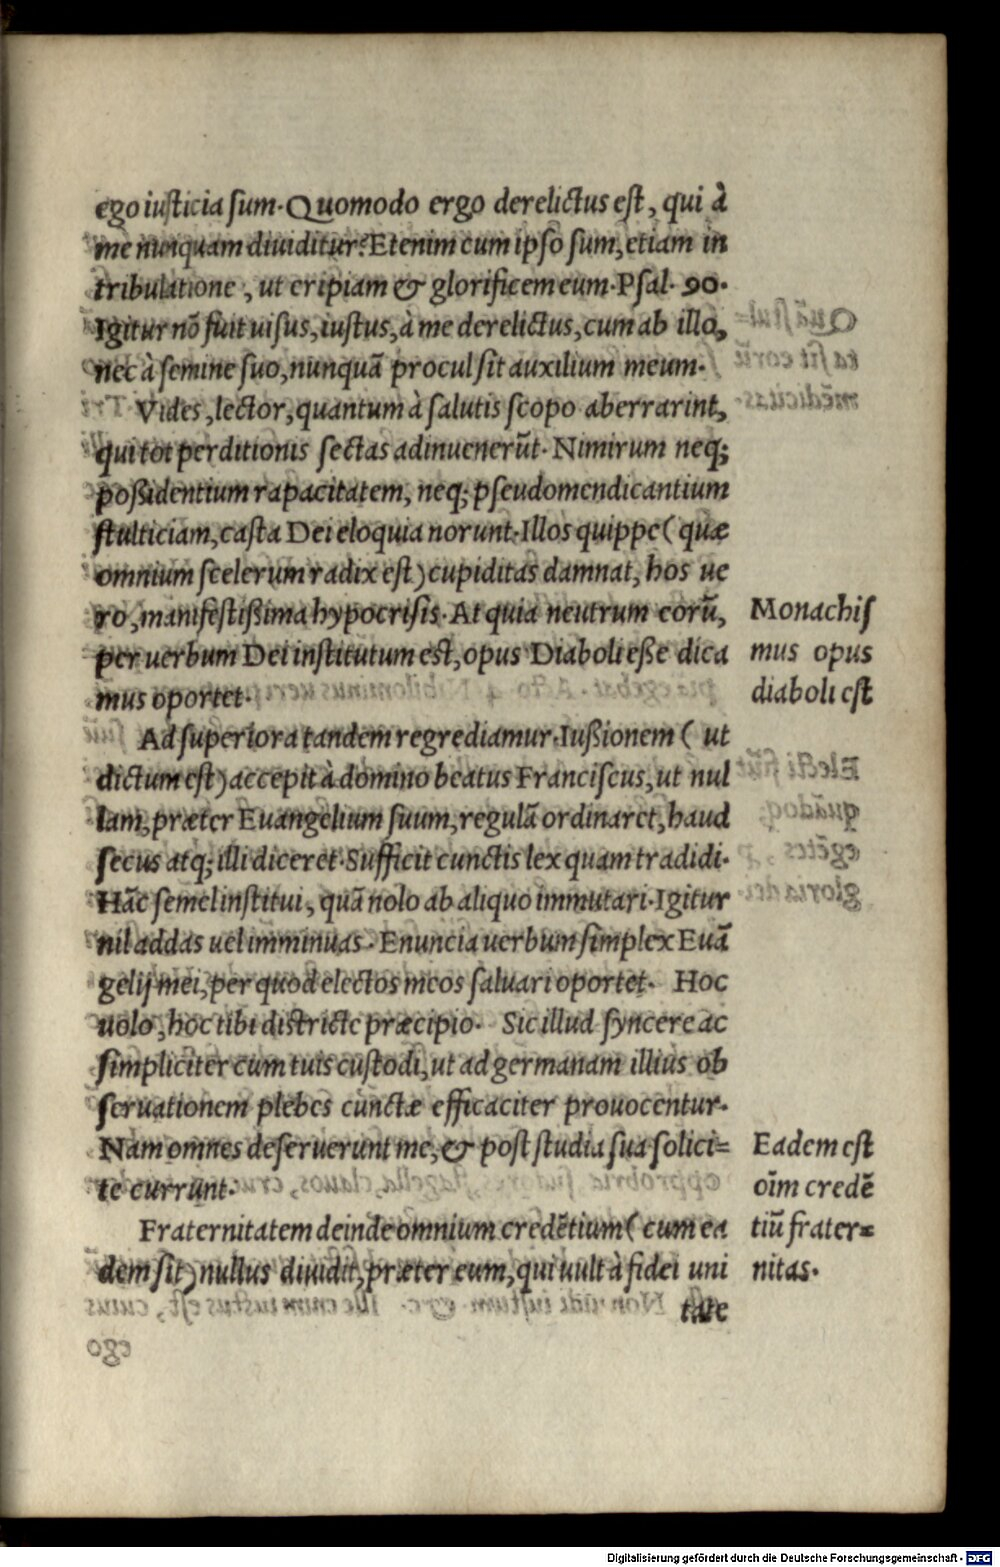 ego iusticia sum. Quomodo ergo derelictus est, qui à
me nunquam diuiditur? Etenim cum ipso sum, etiam in
tribulatione, ut eripiam & glorificem eum. Psal. 90.
Igitur nõ fuit uisus, iustus, à me derelictus, cum ab illo,
nec à semine suo, nunquã procul sit auxilium meum.
Vides, lector, quantum à salutis scopo aberrarint,
qui tot perditionis sectas adinuenerũt. Nimirum neq;
poßidentium rapacitatem, neq; pseudomendicantium
stulticiam, casta Dei eloquia norunt. Illos quippe (quæ
omnium scelerum radix est) cupiditas damnat, hos ue
ro, manifestißima hypocrisis. At quia neutrum eorũ,
per uerbum Dei institutum est, opus Diaboli eße dica
mus oportet.
Monachis
mus opus
diaboli est
Ad superiora tandem regrediamur. Iußionem (ut
dictum est) accepit à domino beatus Franciscus, ut nul
lam, præter Euangelium suum, regulã ordinaret, haud
secus atq; illi diceret. Sufficit cunctis lex quam tradidi.
Hãc semel institui, quã nolo ab aliquo immutari. Igitur
nil addas uel imminuas. Enuncia uerbum simplex Euã
gelij mei, per quod electos meos saluari oportet. Hoc
uolo, hoc tibi districte præcipio. Sic illud syncere ac
simpliciter cum tuis custodi, ut ad germanam illius ob
seruationem plebes cunctæ efficaciter prouocentur.
Nam omnes deseruerunt me, & post studia sua solici=
te currunt.
Fraternitatem deinde omnium credẽtium (cum ea
dem sit) nullus diuidit, præter eum, qui uult à fidei uni
tate
Eadem est
oĩm credẽ
tiũ frater=
nitas.
Digitalisierung gefördert durch die Deutsche Forschungsgemeinschaft - DFG